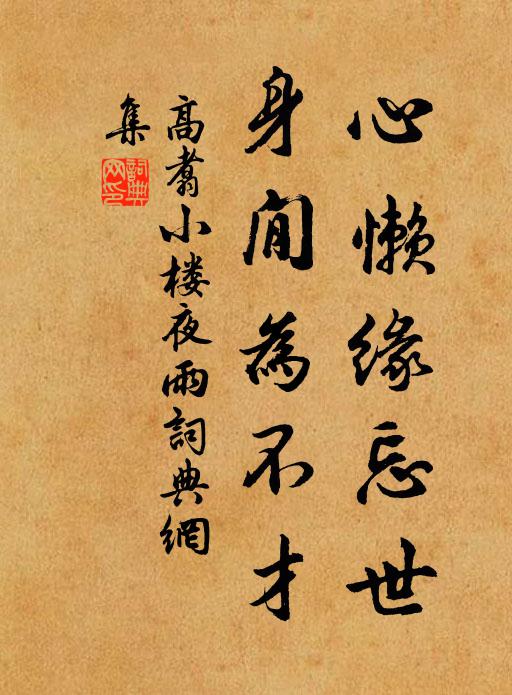 心懒缘忘世
身閒為不才
高翥小楼夜雨詞典網
集
詞典
网印